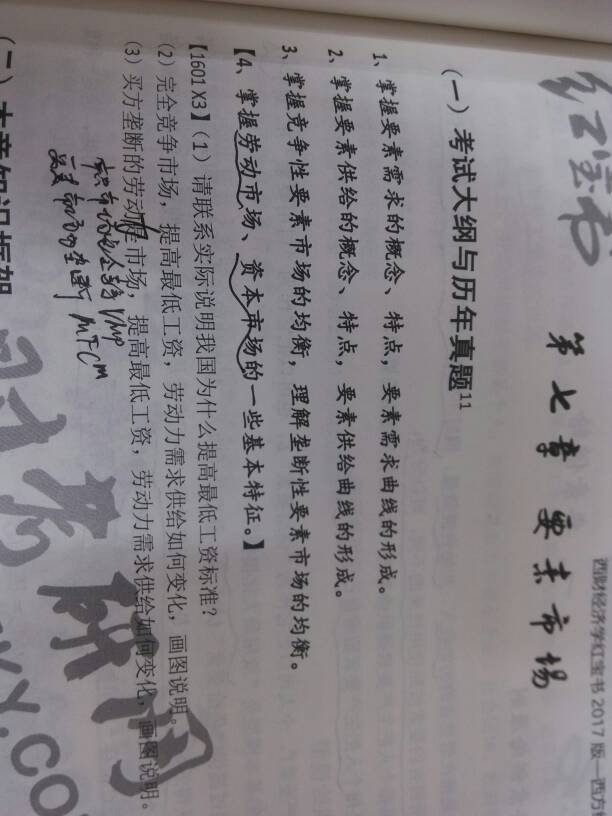 红宝书
西财经济学红宝书 2017 版—西方
第七章 要素市场
(一) 考试大纲与历年真题11
1、掌握要素需求的概念、特点，要素需求曲线的形成。
2、掌握要素供给的概念、特点，要素供给曲线的形成。
3、掌握竞争性要素市场的均衡，理解垄断性要素市场的均衡。
【4、掌握劳动市场、资本市场的一些基本特征。】
【1601 X3】(1) 请联系实际说明我国为什么提高最低工资标准？
(2) 完全竞争市场，提高最低工资，劳动力需求供给如何变化，画图说明。
(3) 买方垄断的劳动市场，提高最低工资，劳动力需求供给如何变化，画图说明。
VMP
MFCM
(二) 本章知识框架